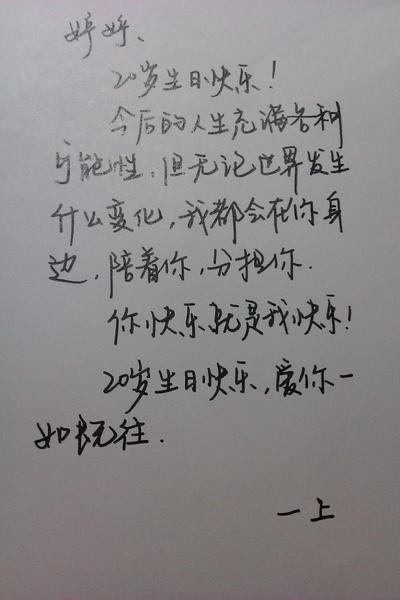 婷婷、
20岁生日快乐!
今后的人生充满各种
可能性,但无论世界发生
什么变化,我都会在你身
边,陪着你,分担你.
你快乐就是我快乐!
20岁生日快乐,爱你一
如既往.
一上